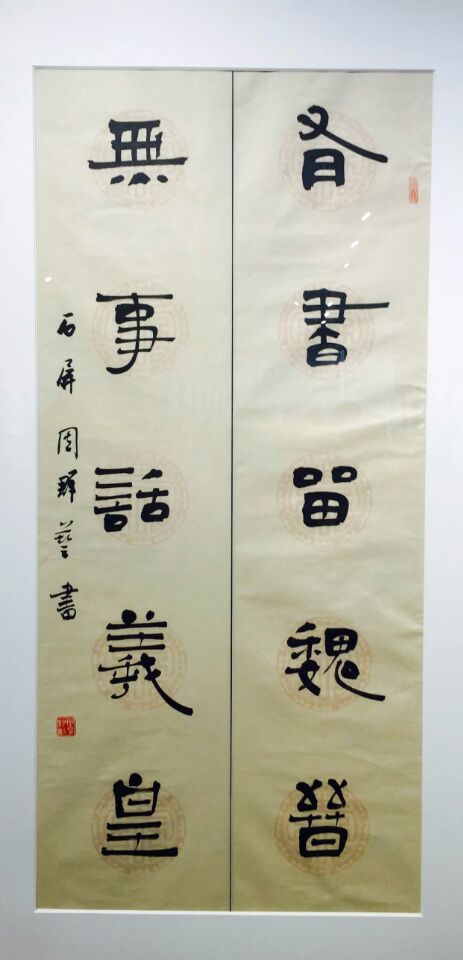 有書留魏晉
無事話羲皇
石屏 周 書